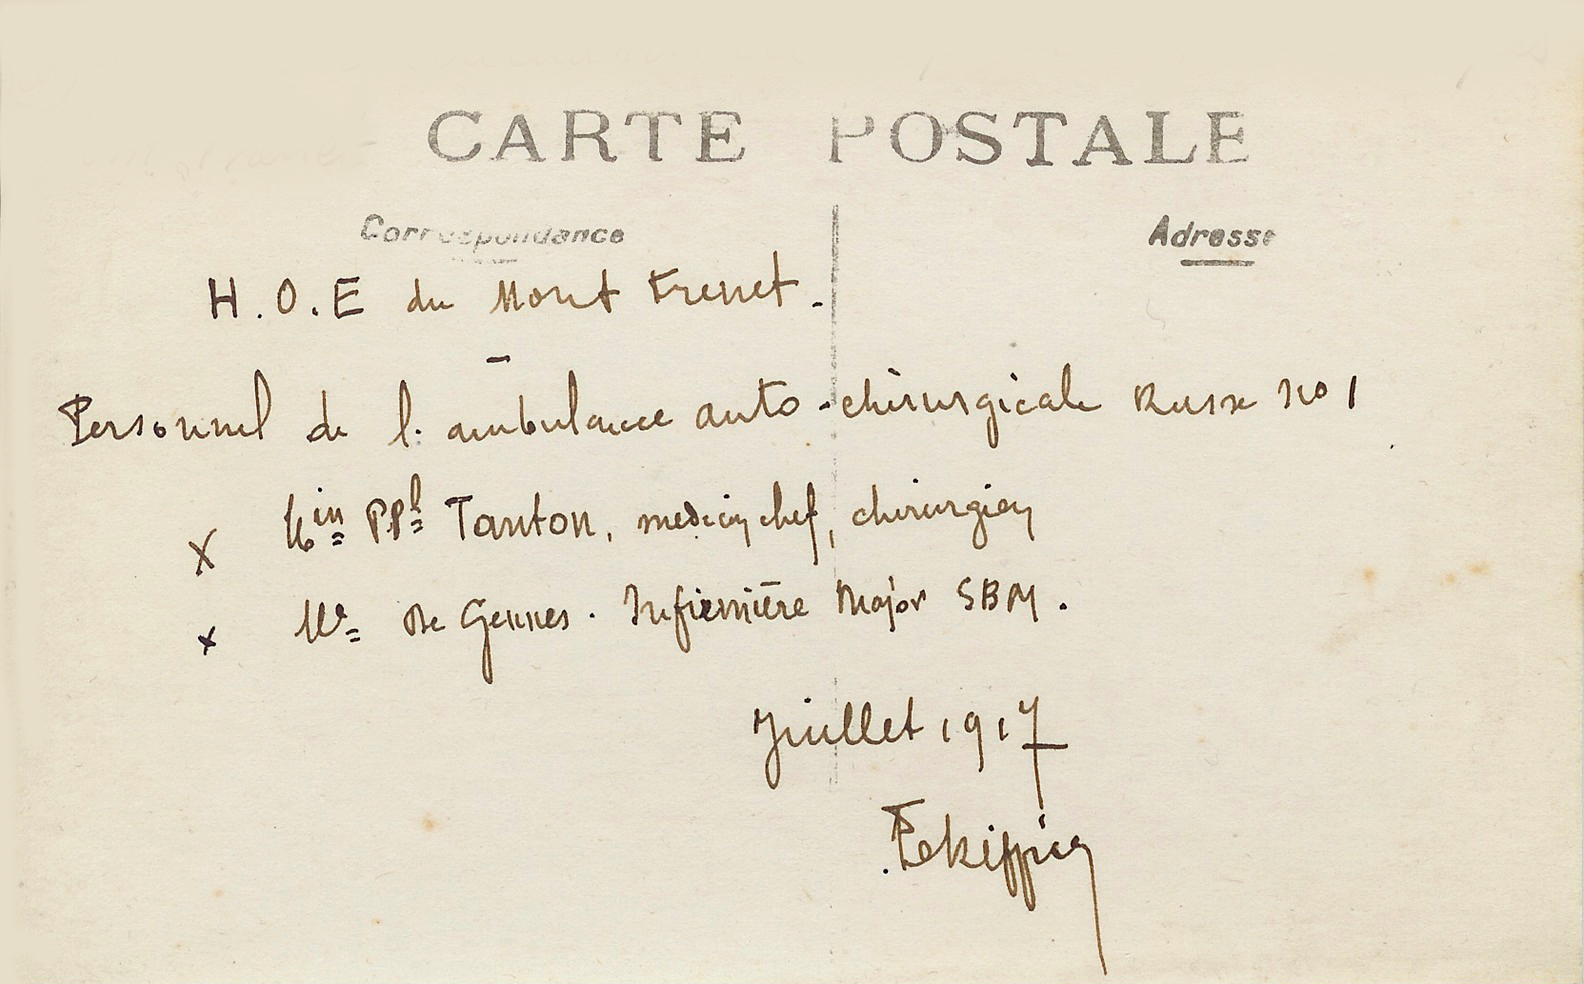 CARTE POSTALE
Correspondance
Adresse
H.O.E du Mont Frenet.
Personnel de l'ambulance auto-chirurgicale Russe No 1
x Min PPl Tanton, medecin chef, chirurgien
x Me De Gennes. Infirmière Major SBM.
Juillet 1917